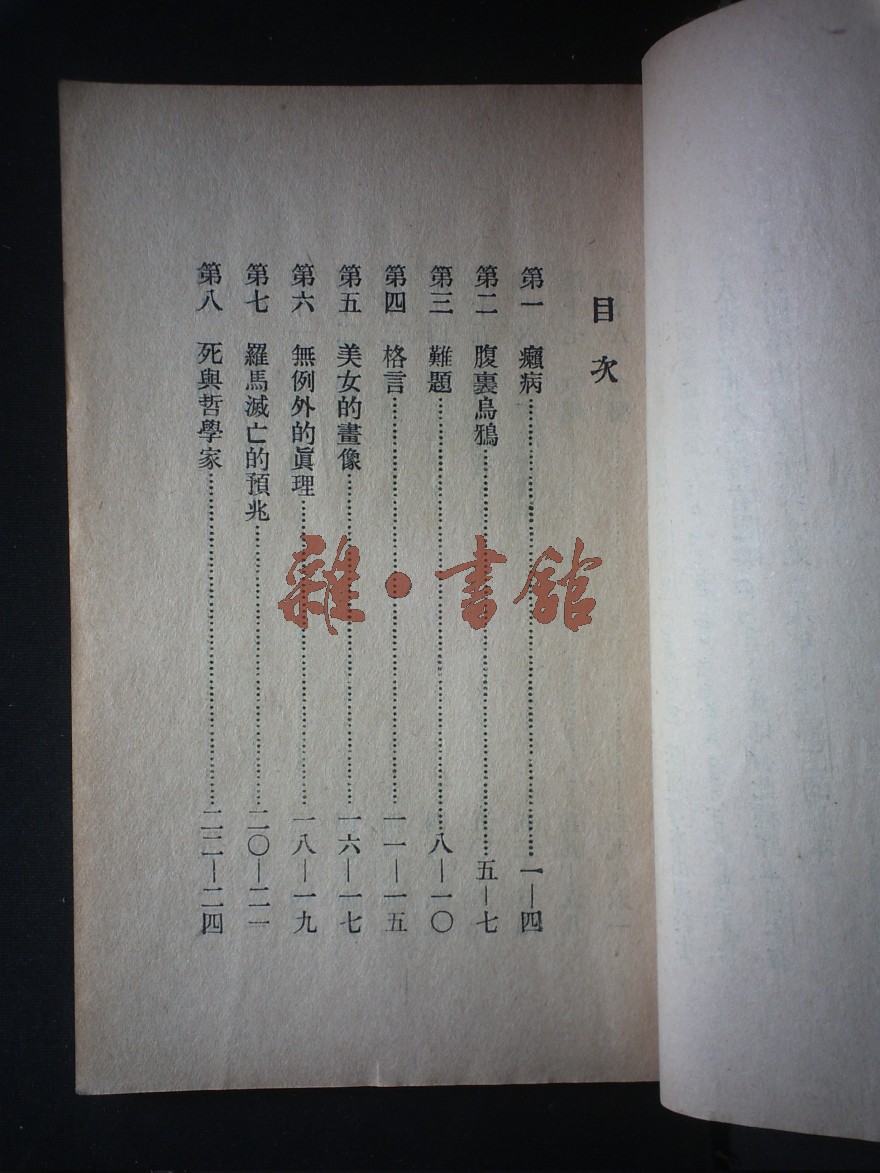 目次
第一　癩病……一—四
第二　腹裏烏鴉……五—七
第三　難題……八—一〇
第四　格言……一一—一五
第五　美女的畫像……一六—一七
第六　無例外的眞理……一八—一九
第七　羅馬滅亡的預兆……二〇—二一
第八　死與哲學家……二二—二四
雜·書館